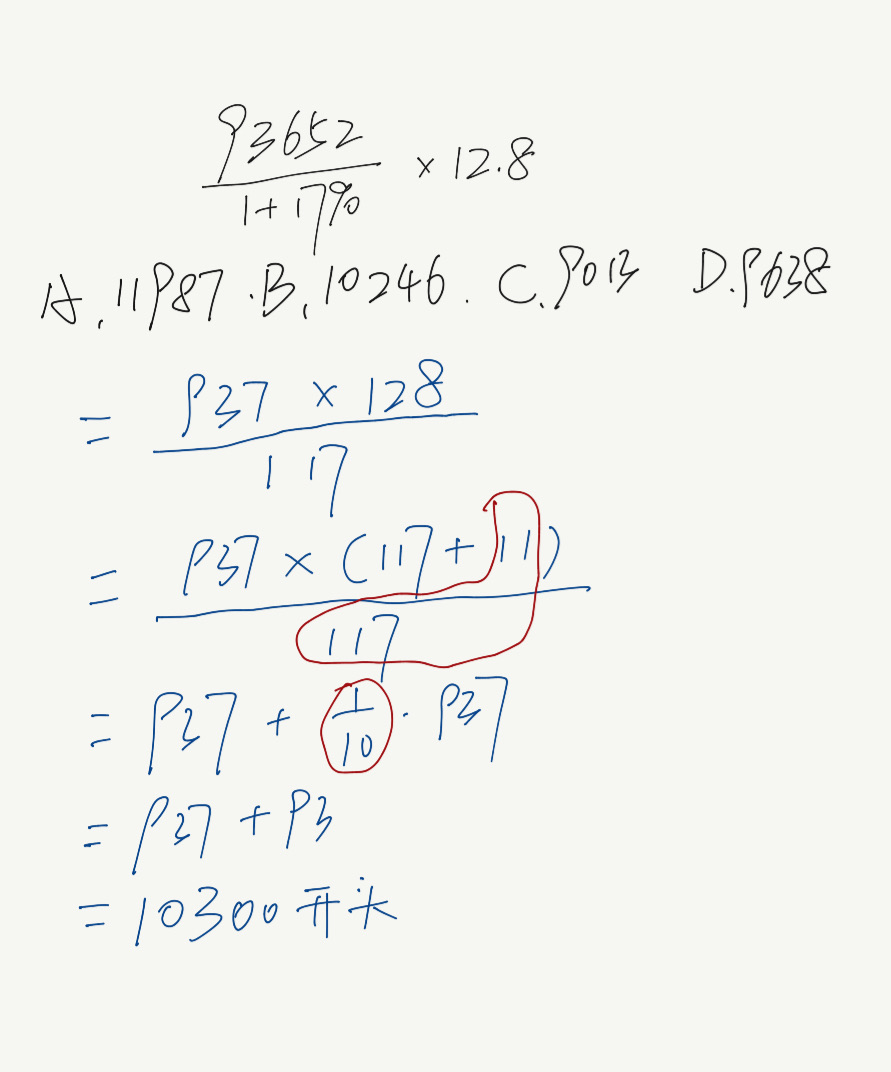 93652
1+17% × 12.8
A.11987.B.10246.C.9013 D.9638
= 937 × 128
117
= 937 × (117+11)
117
= 937 + 1/10 · 937
= 937 + 93
= 10300开头